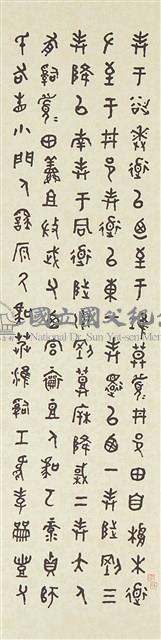 封于逨道以西至于莫眉井邑田自根木道
左至于井邑封道以東一封還以西一封陟剛三
封降以南封于同道陟州剛登柝降棫二封夨人
有嗣眉田鮮且微武父西宮襄豆人虞丂彔貞師
氏右眚小門人繇原人虞艿淮嗣工虎孝開豐父
國立國父紀念館
National Dr. Sun Yat-sen Memorial